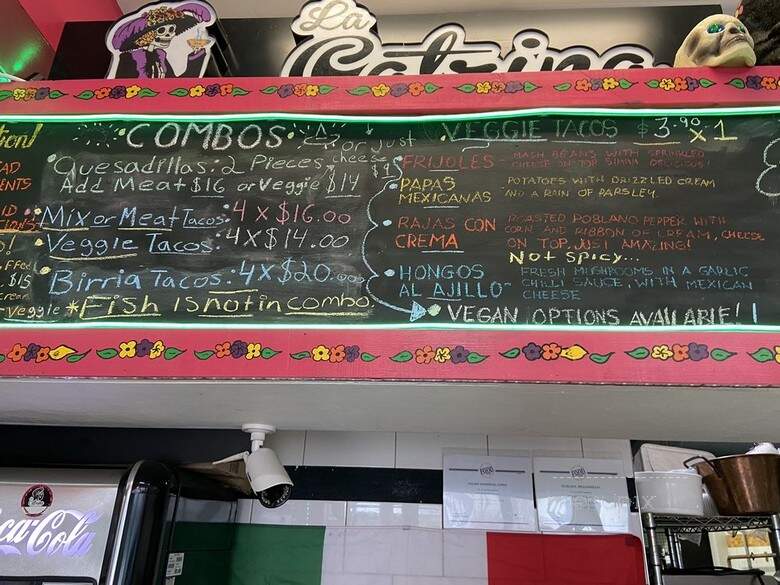 La
Catrina
COMBOS
or Just
cheese $9
Quesadillas: 2 Pieces
Add Meat $16 or Veggie $14
Mix or Meat Tacos: 4 x $16.00
Veggie Tacos: 4 x $14.00
Birria Tacos: 4 x $20.00
*Fish is not in combo
VEGGIE TACOS $3.90 x 1
FRIJOLES - MASH BEANS WITH SPRINKLED
CHEESE ON TOP
DELICIOUS!
PAPAS
MEXICANAS
POTATOES WITH DRIZZLED CREAM
AND A RAIN OF PARSLEY.
RAJAS CON
CREMA
ROASTED POBLANO PEPPER WITH
CORN AND RIBBON OF CREAM, CHEESE
ON TOP. JUST AMAZING!
Not spicy...
HONGOS
AL AJILLO -
FRESH MUSHROOMS IN A GARLIC
CHILLI SAUCE, WITH MEXICAN
CHEESE
VEGAN OPTIONS AVAILABLE!!
$15
Veggie
Coca-Cola
FOOD
FOOD